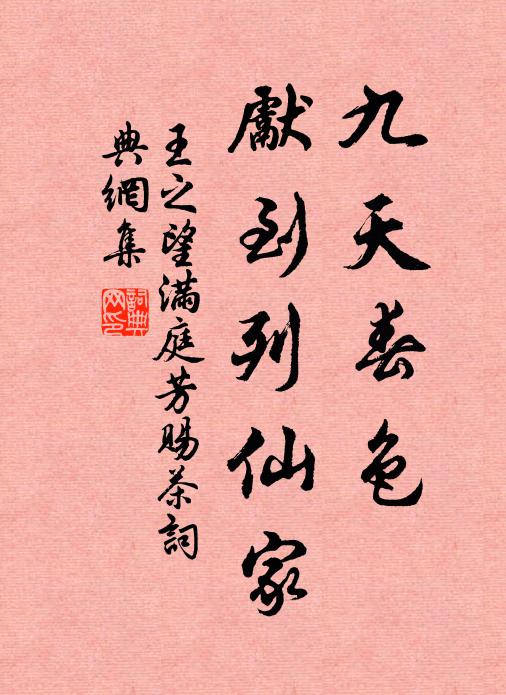 九天春色
獻到列仙家
王之望滿庭芳賜茶詞
典網集
詞典网印